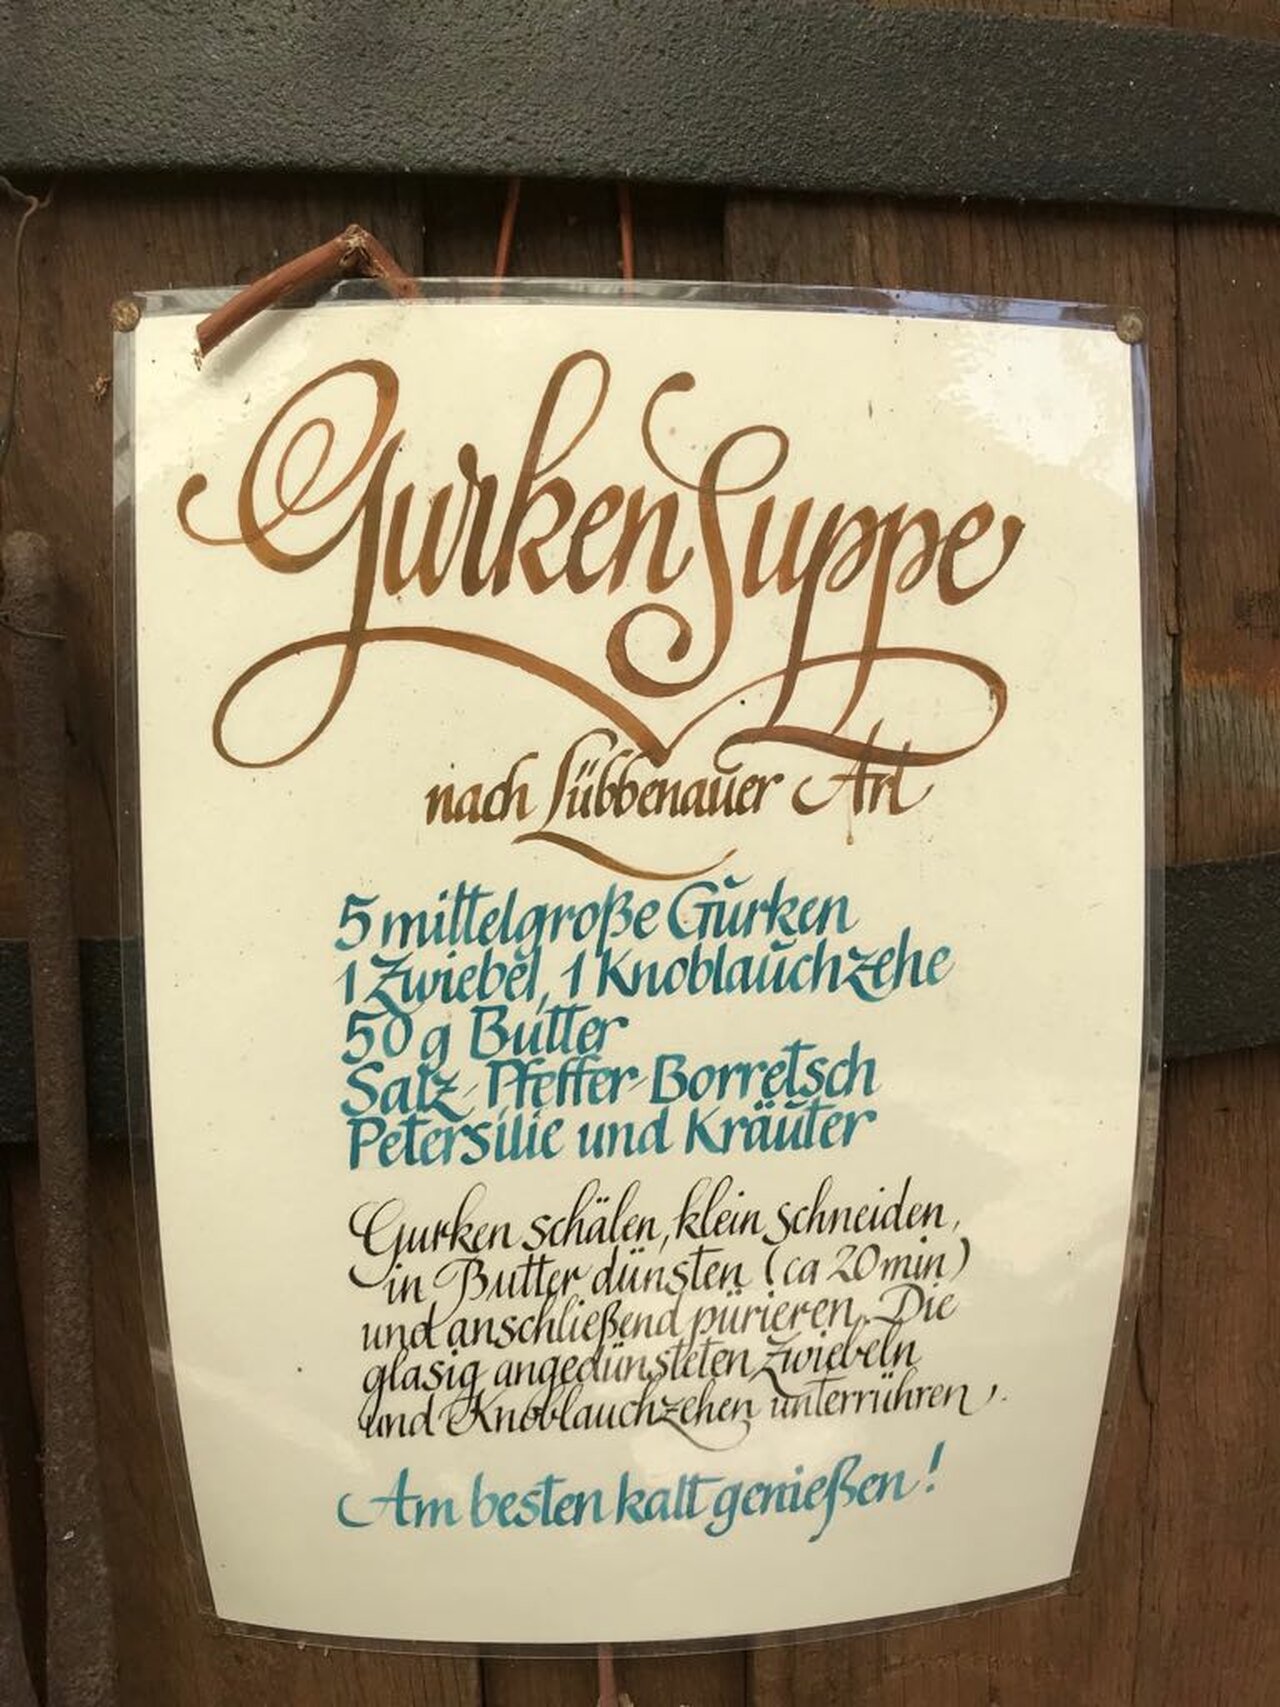 GurkenSuppe
nach Lübbenauer Art
5 mittelgroße Gurken
1 Zwiebel, 1 Knoblauchzehe
50 g Butter
Salz-Pfeffer-Borretsch
Petersilie und Kräuter
Gurken schälen, klein schneiden,
in Butter dünsten (ca 20 min)
und anschließend pürieren. Die
glasig angedünsteten Zwiebeln
und Knoblauchzehen unterrühren.
Am besten kalt genießen!